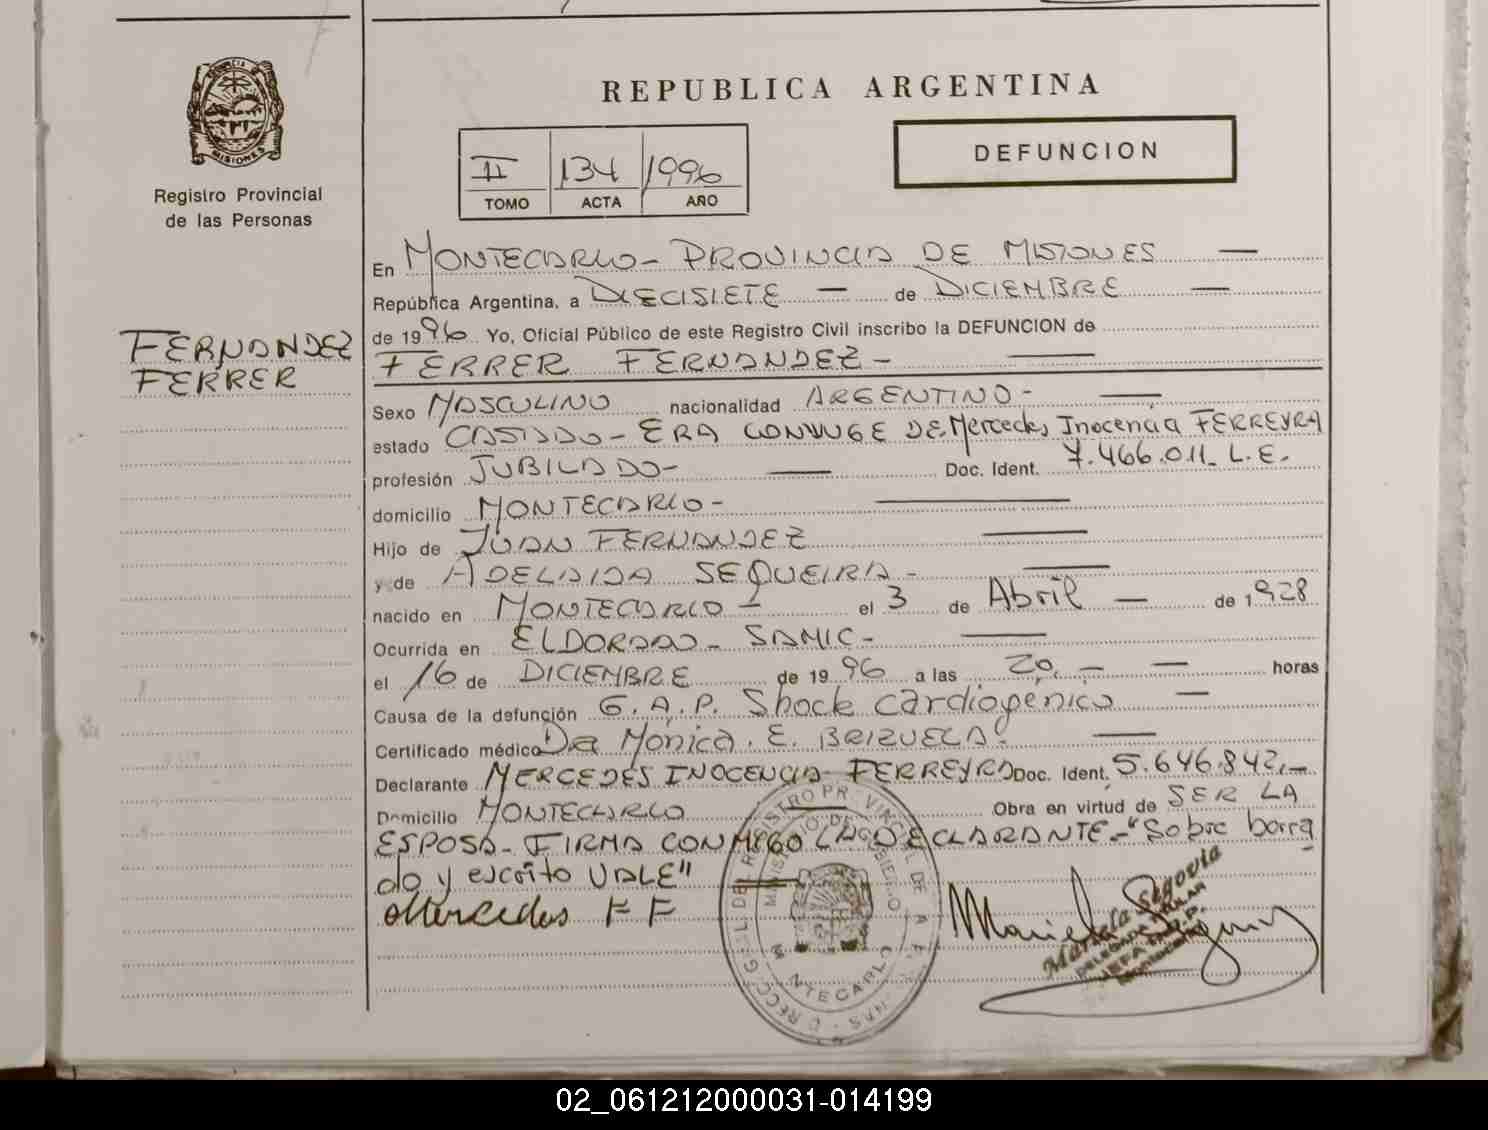 REPUBLICA ARGENTINA
MISIONES
Registro Provincial
de las Personas
II 134 1996
TOMO ACTA AÑO
DEFUNCION
FERNANDEZ
FERRER
En MONTECARLO - PROVINCIA DE MISIONES —
República Argentina, a DIECISIETE — de DICIEMBRE —
de 1996 Yo, Oficial Público de este Registro Civil inscribo la DEFUNCION de
FERRER FERNANDEZ - —
Sexo MASCULINO nacionalidad ARGENTINO - —
estado CASADO - ERA CONYUGE DE Mercedes Inocencia FERREYRA
profesión JUBILADO - — Doc. Ident. 7.466.011 - L.E. -
domicilio MONTECARLO - —
Hijo de JUAN FERNANDEZ —
y de ADELAIDA SEQUEIRA - —
nacido en MONTECARLO - el 3 de Abril — de 1928
Ocurrida en ELDORADO - SAMIC - —
el 16 de DICIEMBRE de 1996 a las 20,- — horas
Causa de la defunción G.A.P. Shock cardiogenico —
Certificado médico Dra Mónica. E. BRIZUELA - —
Declarante MERCEDES INOCENCIA FERREYRA Doc. Ident. 5.646.842,-
Domicilio MONTECARLO Obra en virtud de SER LA
ESPOSA - FIRMA CONMIGO LA DECLARANTE - "Sobre borra
do y escrito VALE"
Mercedes F F
Mariela Segovia
MONTECARLO
02_061212000031-014199